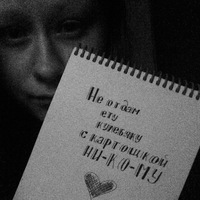 Не отдам
ету
кулебяку
с картошкой
НИ-КО-МУ